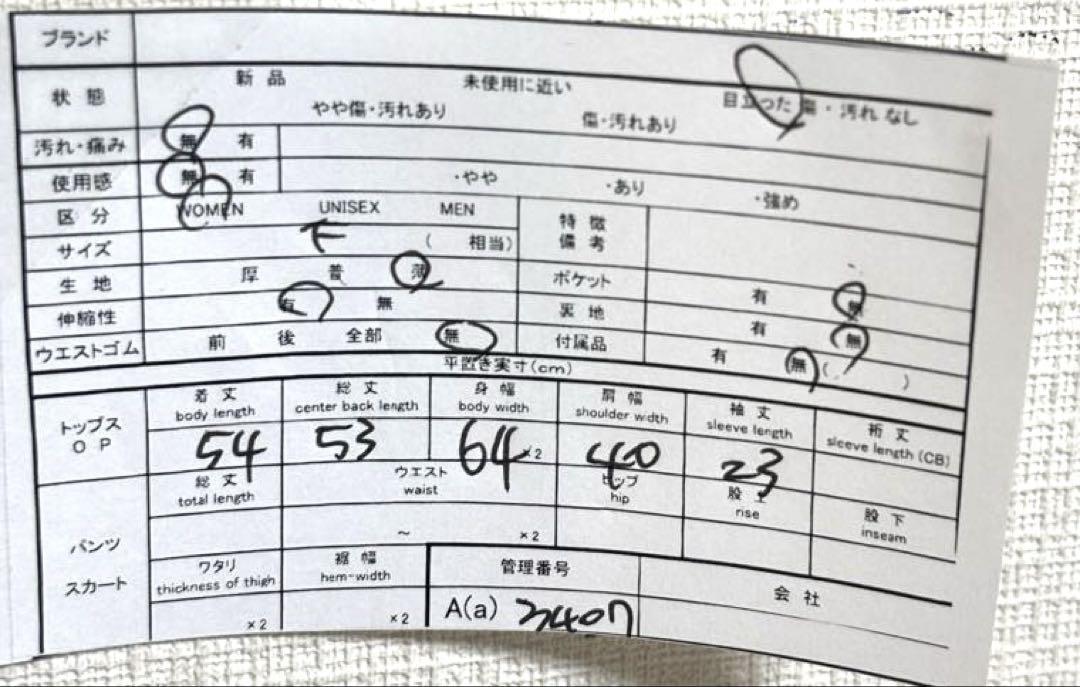 ブランド
状態 新品 未使用に近い 目立った傷・汚れなし
やや傷・汚れあり 傷・汚れあり
汚れ・痛み 無 有
使用感 無 有 ・やや ・あり ・強め
区分 WOMEN UNISEX MEN 特徴 備考
サイズ F ( 相当)
生地 厚 普 薄 ポケット 有 無
伸縮性 有 無 裏地 有 無
ウエストゴム 前 後 全部 無 付属品 有 無 ( )
平置き実寸(cm)
トップス OP 着丈 総丈 身幅 肩幅 袖丈 裄丈
body length center back length body width shoulder width sleeve length sleeve length (CB)
54 53 64 ×2 40 23
パンツ スカート 総丈 ウエスト ヒップ 股上 股下
total length waist hip rise inseam
~ ×2
ワタリ 裾幅 管理番号 会社
thickness of thigh hem-width
×2 ×2 A(a) 3407